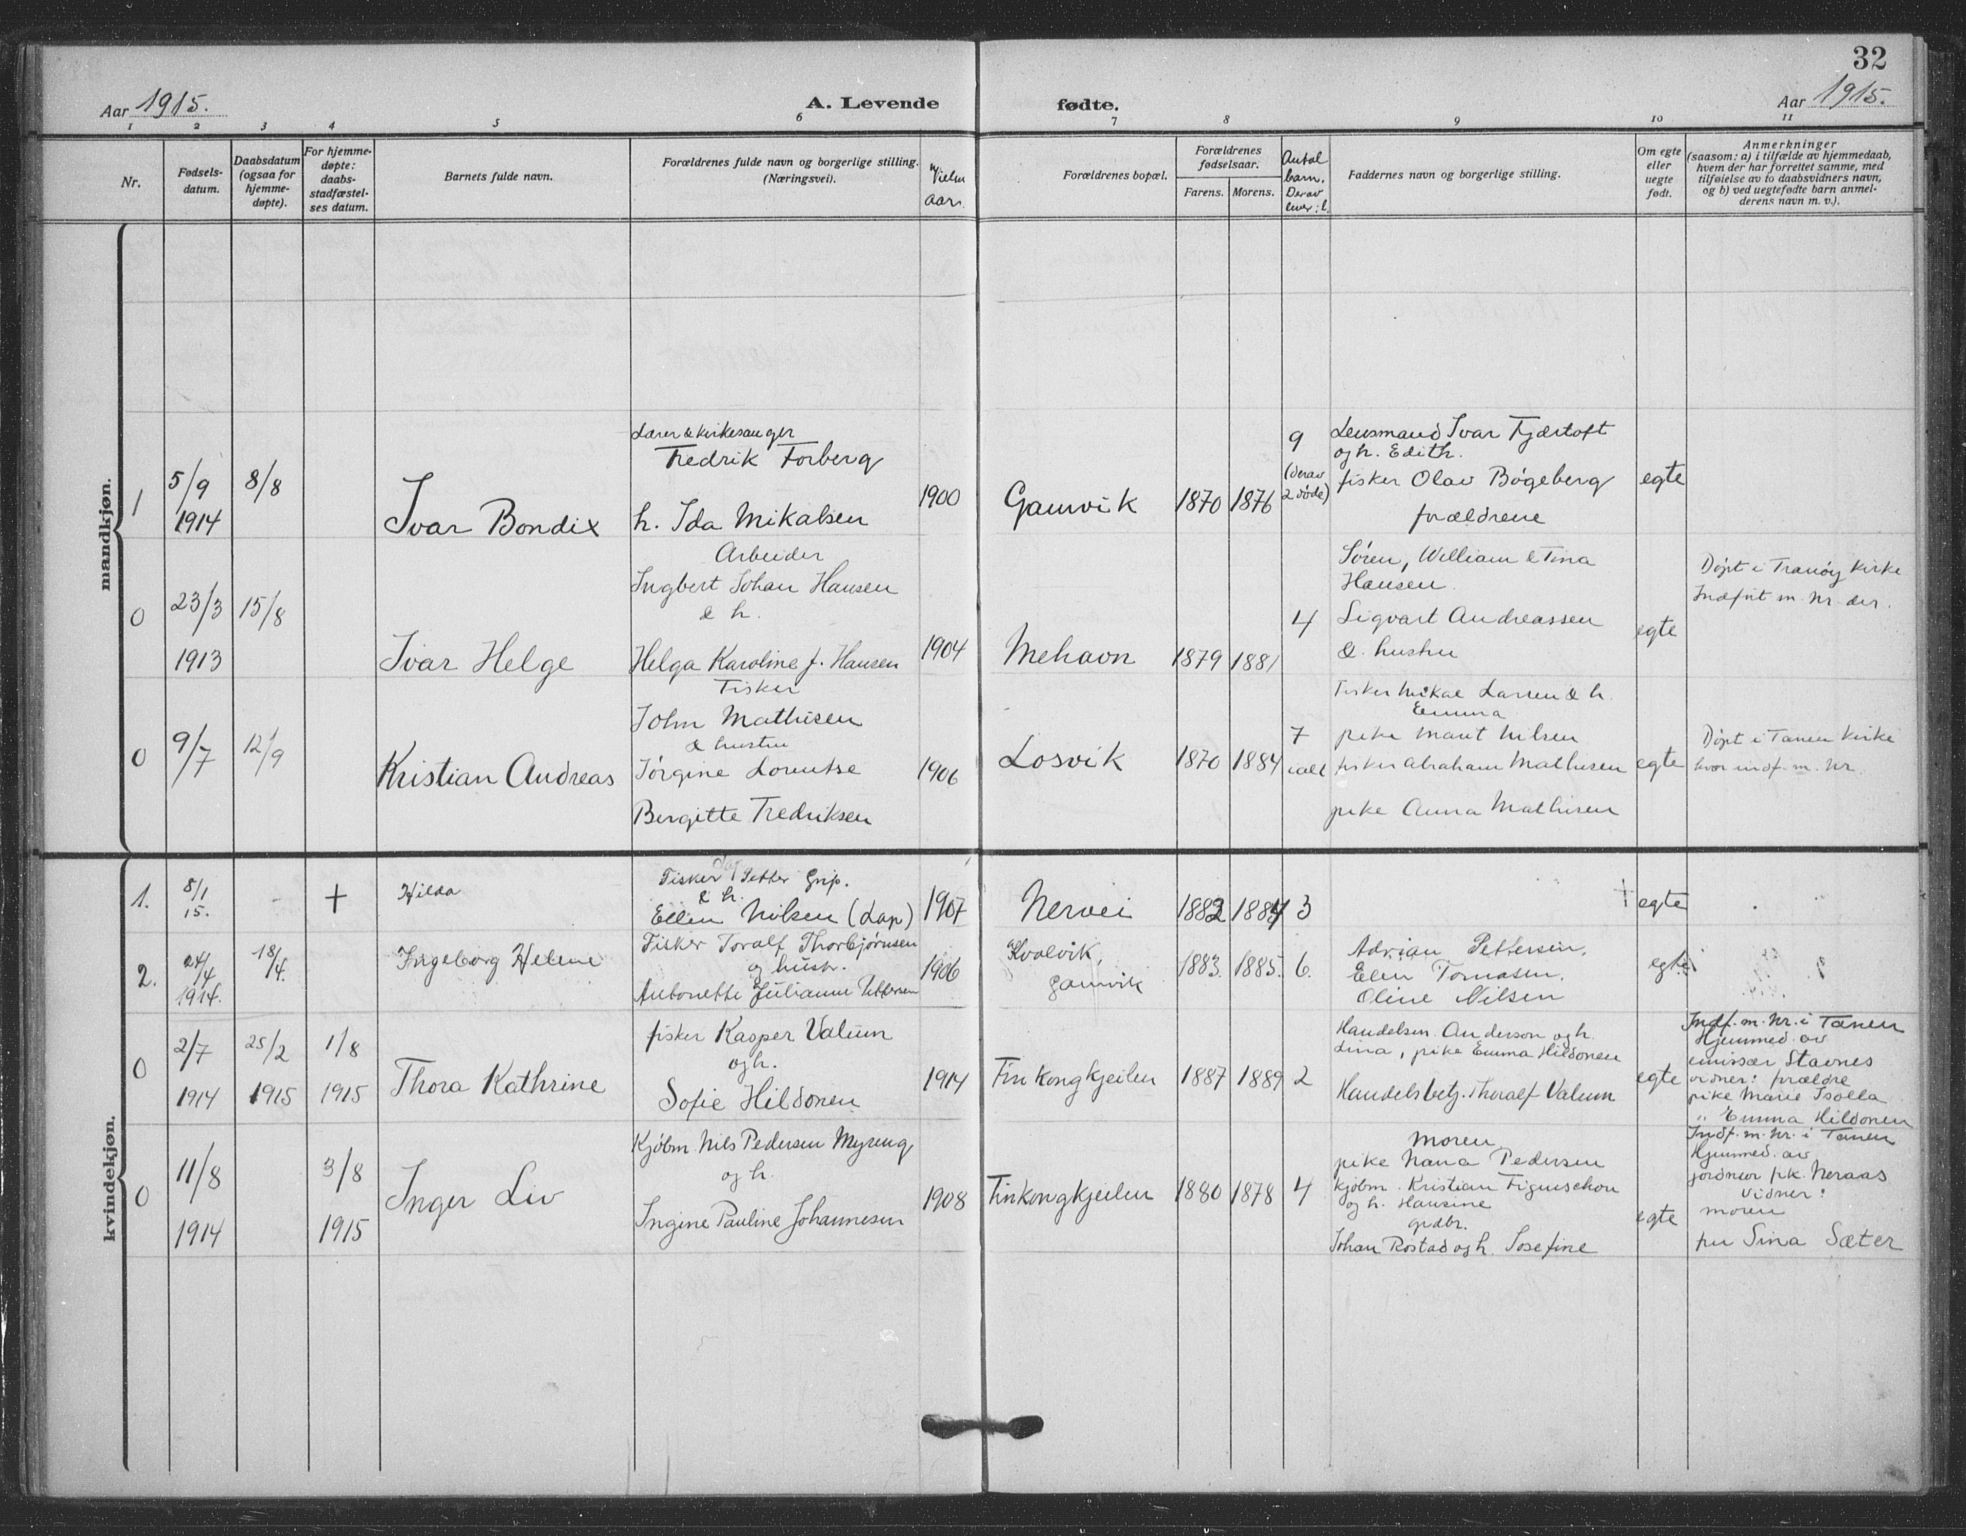 32
Aar 1915.
A. Levende
fødte.
Aar 1915.
1 2 3 4 5 6 7 8 9 10 11
Nr.
Fødsels-
datum.
Daabsdatum
(ogsaa for
hjemme-
døpte).
For hjemme-
døpte:
daabs-
stadfæstel-
ses datum.
Barnets fulde navn.
Forældrenes fulde navn og borgerlige stilling.
(Næringsvei).
Vielse
aar.
Forældrenes bopæl.
Forældrenes
fødselsaar.
Farens. Morens.
Antal
barn.
Derav
lever:
Faddernes navn og borgerlige stilling.
Om egte
eller
uegte
født.
Anmerkninger
(saasom: a) i tilfælde av hjemmedaab,
hvem der har forrettet samme, med
tilføielse av to daabsvidners navn,
og b) ved uegtefødte barn anmel-
derens navn m. v.).
mandkjøn.
1
5/9
1914
8/8
Ivar Bondix
Lærer & kirkesanger
Fredrik Forberg
h. Ida Mikalsen
1900
Gamvik
1870 1876
9
(derav
2 døde)
Lensmand Ivar Fjærtoft
og h. Edith.
fisker Olav Bøgeberg
forældrene
egte
0
23/3
1913
15/8
Ivar Helge
Arbeider
Ingbert Johan Hansen
& h.
Helga Karoline f. Hansen
1904
Mehavn
1879 1881
4
Søren, William & Tina
Hansen.
Sigvart Andreassen
& hustru
egte
Døpt i Tranøy Kirke
Indført m. Nr. der.
0
9/7
12/9
Kristian Andreas
Fisker
John Mathisen
& hustru
Jørgine Lorentse
Birgitte Fredriksen
1906
Losvik
1870 1884
7
ialt
Fisker Mikal Larsen & h.
Emma
pike Marit Nilsen
fisker Abraham Mathisen
pike Anna Mathisen
egte
Døpt i Tanen Kirke
hvor indf. m. Nr.
kvindekjøn.
1.
8/1
15.
-
+
Hilda
Fisker Petter Grip.
& h.
Ellen Nilsen (Lap)
1907
Nervei
1882 1884 3
+ egte
2.
24/4
1914.
18/4.
Ingeborg Helene
Fisker Toralf Thorbjørnsen
og hustr.
Antonette Julianne Pettersen
1906
Kvalvik,
Gamvik
1883. 1885. 6.
Adrian Pettersen.
Elen Tomasen.
Oline Nilsen
egte
0
2/7
1914
25/2
1915
1/8
1915
Thora Kathrine
fisker Kasper Valum
og h.
Sofie Hildonen
1914
Finkongkjeilen
1887 1889 2
Handelsm. Anderson og h.
Lina, pike Emma Hildonen
Handelsbetj. Thoralf Valum
egte
Indf. m. Nr. i Tanen
Hjemmed. av
emissær Stavnes
vidner: forældre
pike Marie Isolla
" Emma Hildonen
0
11/8
1914
3/8
1915
Inger Liv
Kjøbm. Nils Pedersen Myreng
og h.
Ingine Pauline Johannesen
1908
Finkongkjeilen
1880 1878 4
Moren
pike Nana Pedersen
kjøbm. Kristian Figenschou
og h. Hansine
grdbr.
Johan Rostad og h. Josefine
egte
Indf. m. Nr. i Tanen
Hjemmed. av
jordmor frk. Neraas
Vidner:
moren
fru Sina Sæter